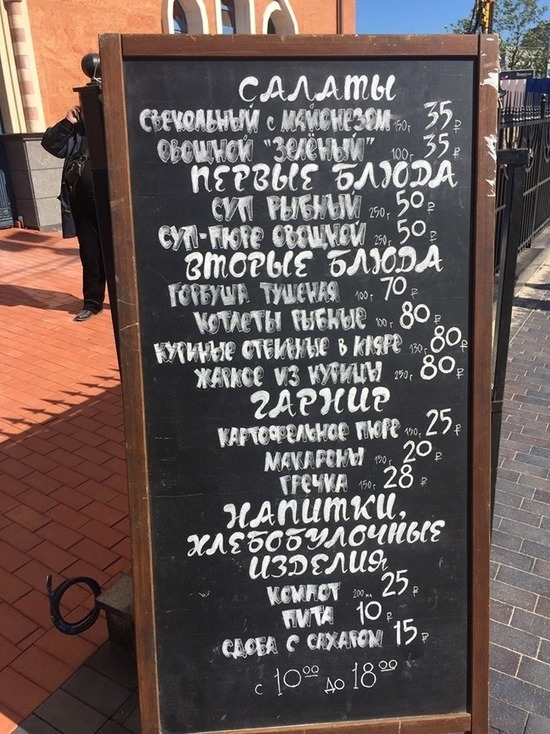 САЛАТЫ
СВЕКОЛЬНЫЙ с МАЙОНЕЗОМ 150 г. 35 ₽
ОВОЩНОЙ "ЗЕЛЁНЫЙ" 100 г. 35 ₽
ПЕРВЫЕ БЛЮДА
СУП РЫБНЫЙ 250 г. 50 ₽
СУП-ПЮРЕ ОВОЩНОЙ 250 г. 50 ₽
ВТОРЫЕ БЛЮДА
ГОРБУША ТУШЕНАЯ 100 г. 70 ₽
КОТЛЕТЫ РЫБНЫЕ 100 г. 80 ₽
КУРИНЫЕ ОТБИВНЫЕ В КЛЯРЕ 130 г. 80 ₽
ЖАРКОЕ ИЗ КУРИЦЫ 250 г. 80 ₽
ГАРНИР
КАРТОФЕЛЬНОЕ ПЮРЕ 150 г. 25 ₽
МАКАРОНЫ 150 г. 20 ₽
ГРЕЧКА 150 г. 28 ₽
НАПИТКИ,
ХЛЕБОБУЛОЧНЫЕ
ИЗДЕЛИЯ
КОМПОТ 200 мл 25 ₽
ПИТА 10 ₽
СДОБА С САХАРОМ 15 ₽
с 10⁰⁰ до 18⁰⁰